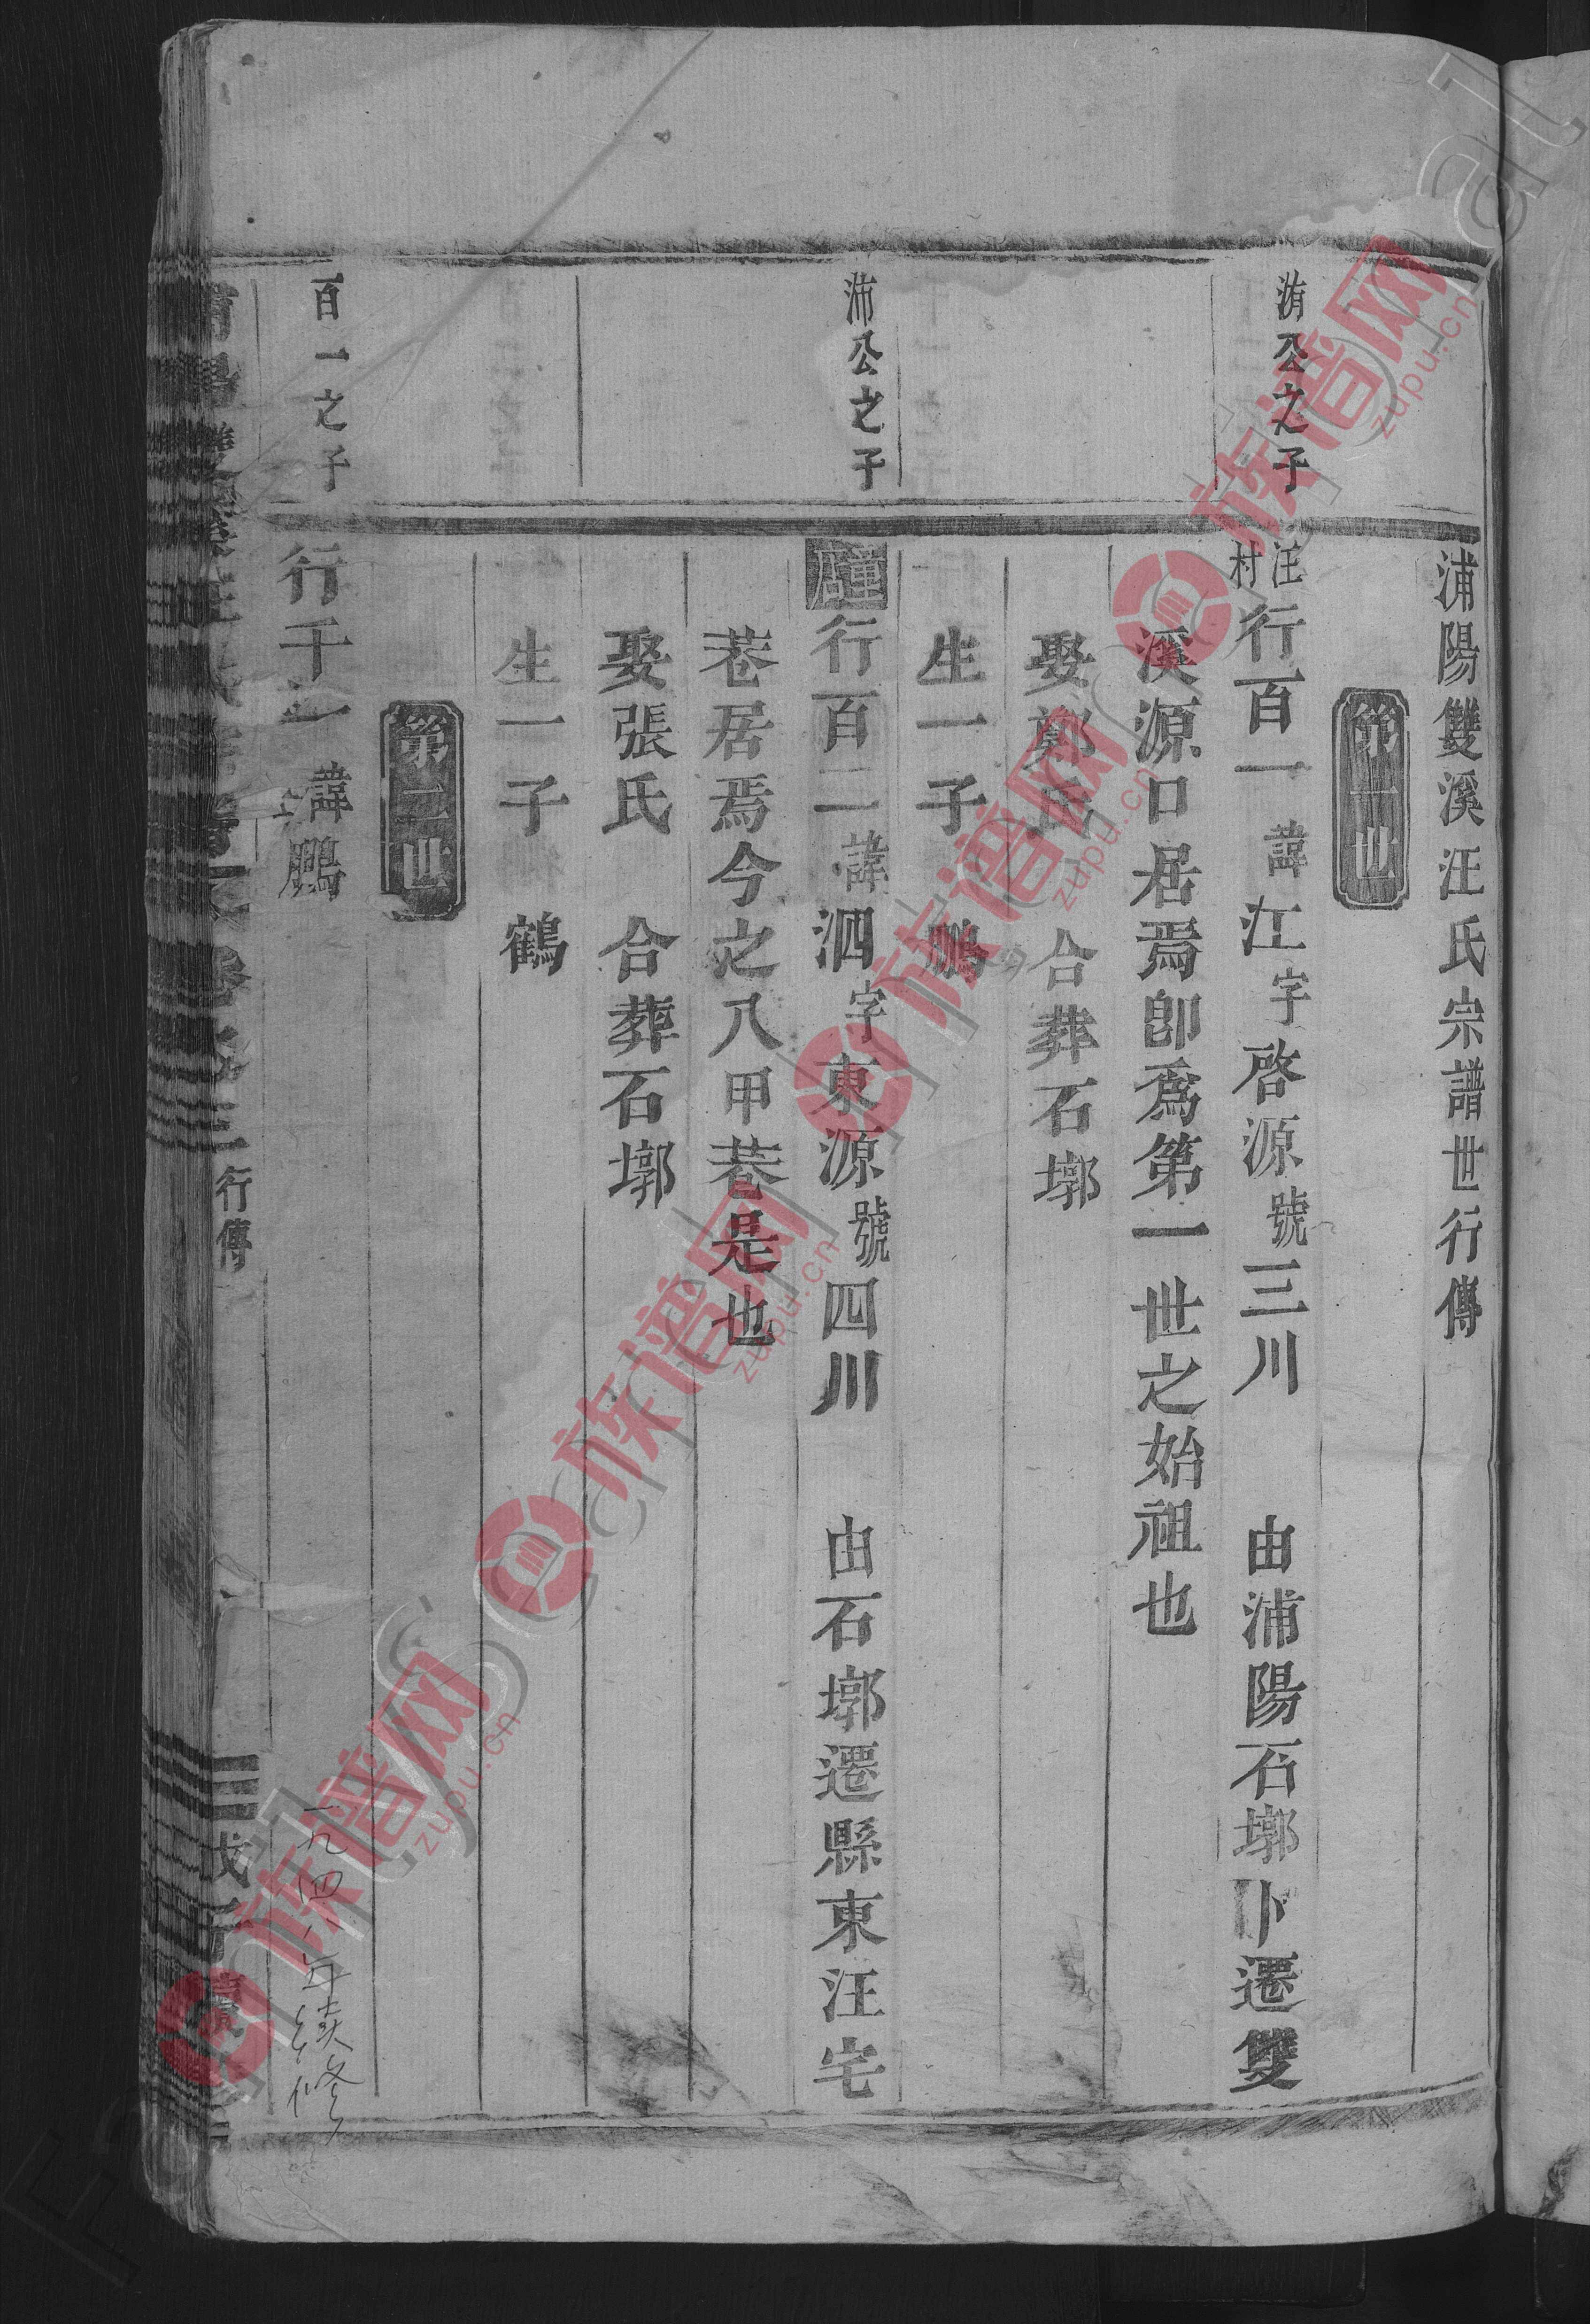 浦陽雙溪汪氏宗譜世行傳
第一世
洧公之子
汪村
行百一 諱江字啓源號三川 由浦陽石墎卜遷雙
溪源口居焉卽爲第一世之始祖也
娶鄭氏 合葬石墎
生一子 鵬
沛公之子
行百二 諱泗字東源號四川 由石墎遷縣東汪宅
巷居焉今之八甲巷是也
娶張氏 合葬石墎
生一子 鶴
第二世
百一之子
行千一 諱鵬
一九四八年續修
行傳
三
戊子
族谱网
zupu.cn
族谱网
zupu.cn
族谱网
zupu.cn
族谱网
zupu.cn
族谱网